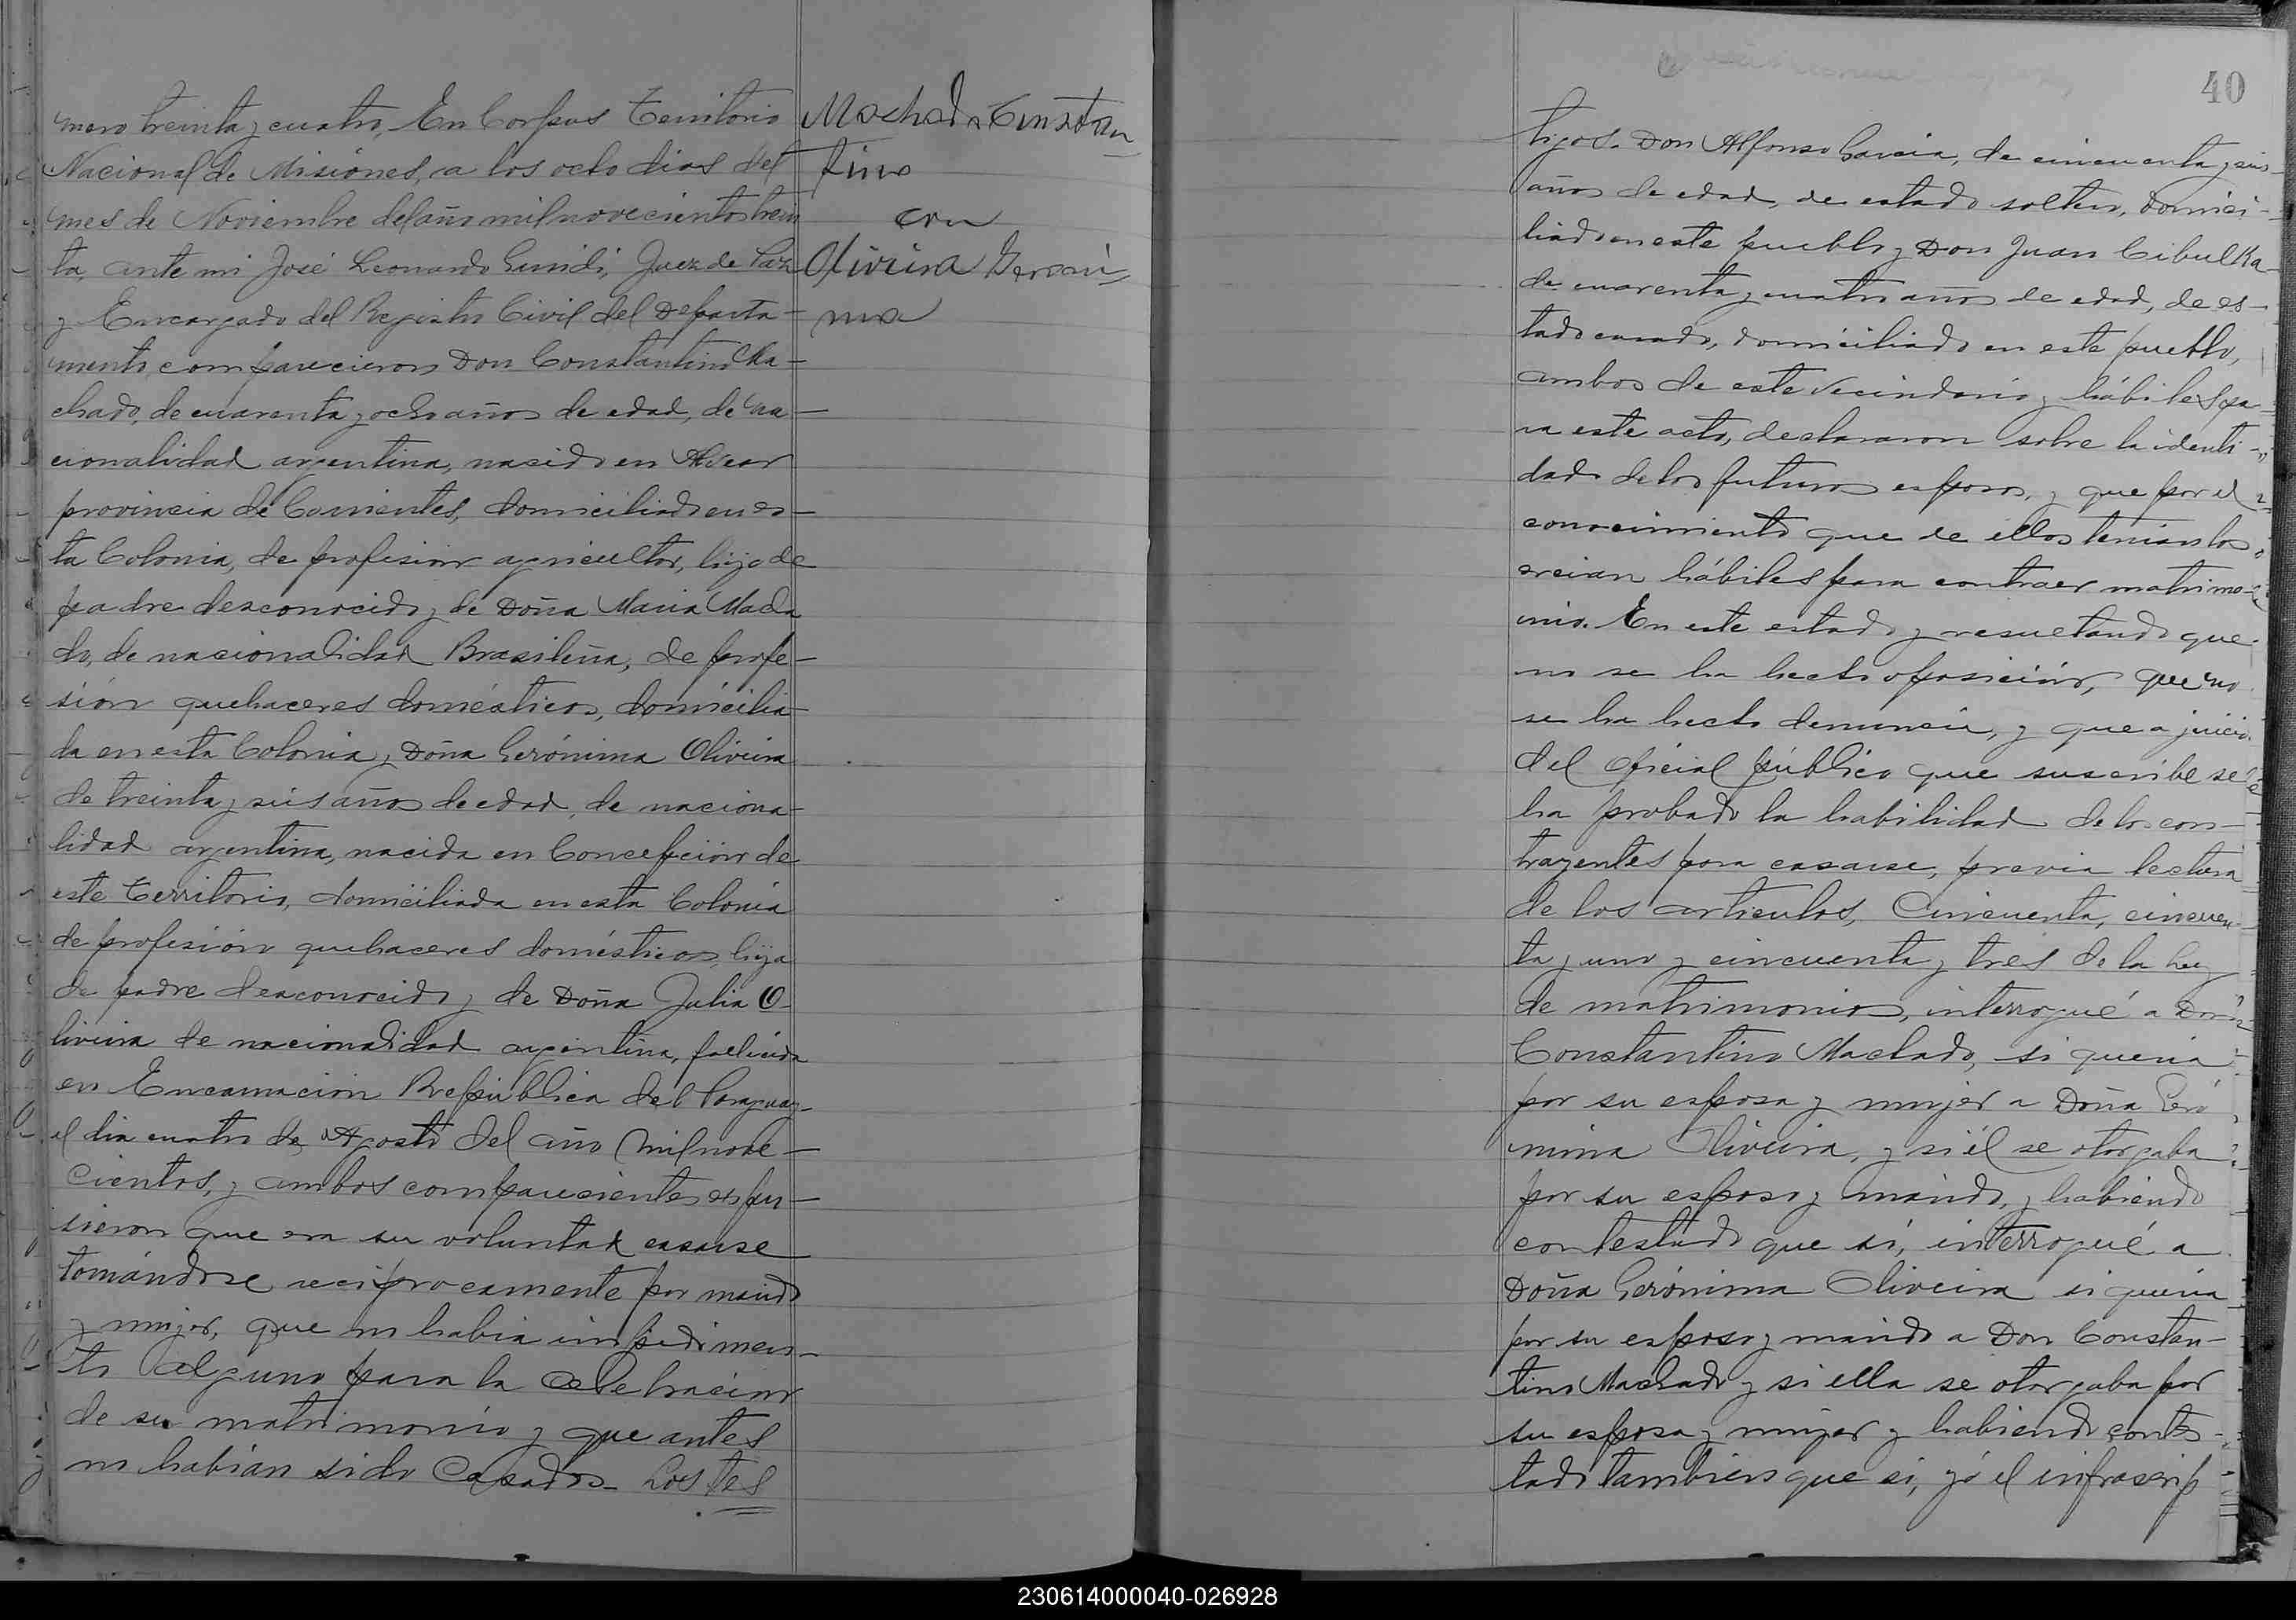 mero treinta y cuatro, En Corpus Territorio
Nacional de Misiones, a los ocho dias del
mes de Noviembre del año mil novecientos trein
ta, ante mi José Leonardo Juez de Paz
y Encargado del Registro Civil del Departa-
mento, comparecieron Don Constantino Ma-
chado, de cuarenta y ocho años de edad, de na-
cionalidad argentina, nacido en Alvear
provincia de Corrientes, domiciliado en es-
ta Colonia, de profesión agricultor, hijo de
padre desconocido y de Doña Maria Macha
do, de nacionalidad Brasileña, de profe-
sión quehaceres domésticos, domicilia-
da en esta Colonia y Doña Gerónima Oliveira
de treinta y seis años de edad, de naciona-
lidad argentina, nacida en Concepción de
este Territorio, domiciliada en esta Colonia
de profesión quehaceres domésticos, hija
de padre desconocido y de Doña Julia O-
liveira de nacionalidad argentina, fallecida
en Encarnación República del Paraguay
el dia cuatro de Agosto del año mil nove-
cientos, y ambos comparecientes expu-
sieron que era su voluntad casarse
tomándose reciprocamente por marido
y mujer, que no habia impedimen-
to alguno para la celebración
de su matrimonio y que antes
no habian sido casados. Los tes
Machado Constan
tino
con
Oliveira Geroni
ma
40
tigos. Don Alfonso Garcia, de cincuenta y seis
años de edad, de estado soltero, domici-
liado en este pueblo y Don Juan Cibulka
de cuarenta y cuatro años de edad, de es-
tado casado, domiciliado en este pueblo,
ambos de este vecindario y hábiles pa-
ra este acto, declararon sobre la identi-
dad de los futuros esposos, y que por el
conocimiento que de ellos tenian los
creian hábiles para contraer matrimo-
nio. En este estado y resultando que
no se ha hecho oposición, que no
se ha hecho denuncia, y que a juicio
del oficial público que suscribe se
ha probado la habilidad de los con-
trayentes para casarse, previa lectura
de los articulos, Cincuenta, cincuen-
ta y uno y cincuenta y tres de la ley
de matrimonio, interrogué a Don
Constantino Machado, si queria
por su esposa y mujer a Doña Geró
nima Oliveira, y si él se otorgaba
por su esposo y marido, y habiendo
contestado que si, interrogué a
Doña Gerónima Oliveira si queria
por su esposo y marido a Don Constan-
tino Machado y si ella se otorgaba por
su esposa y mujer y habiendo contes-
tado tambien que si, yó el infrascrip
230614000040-026928